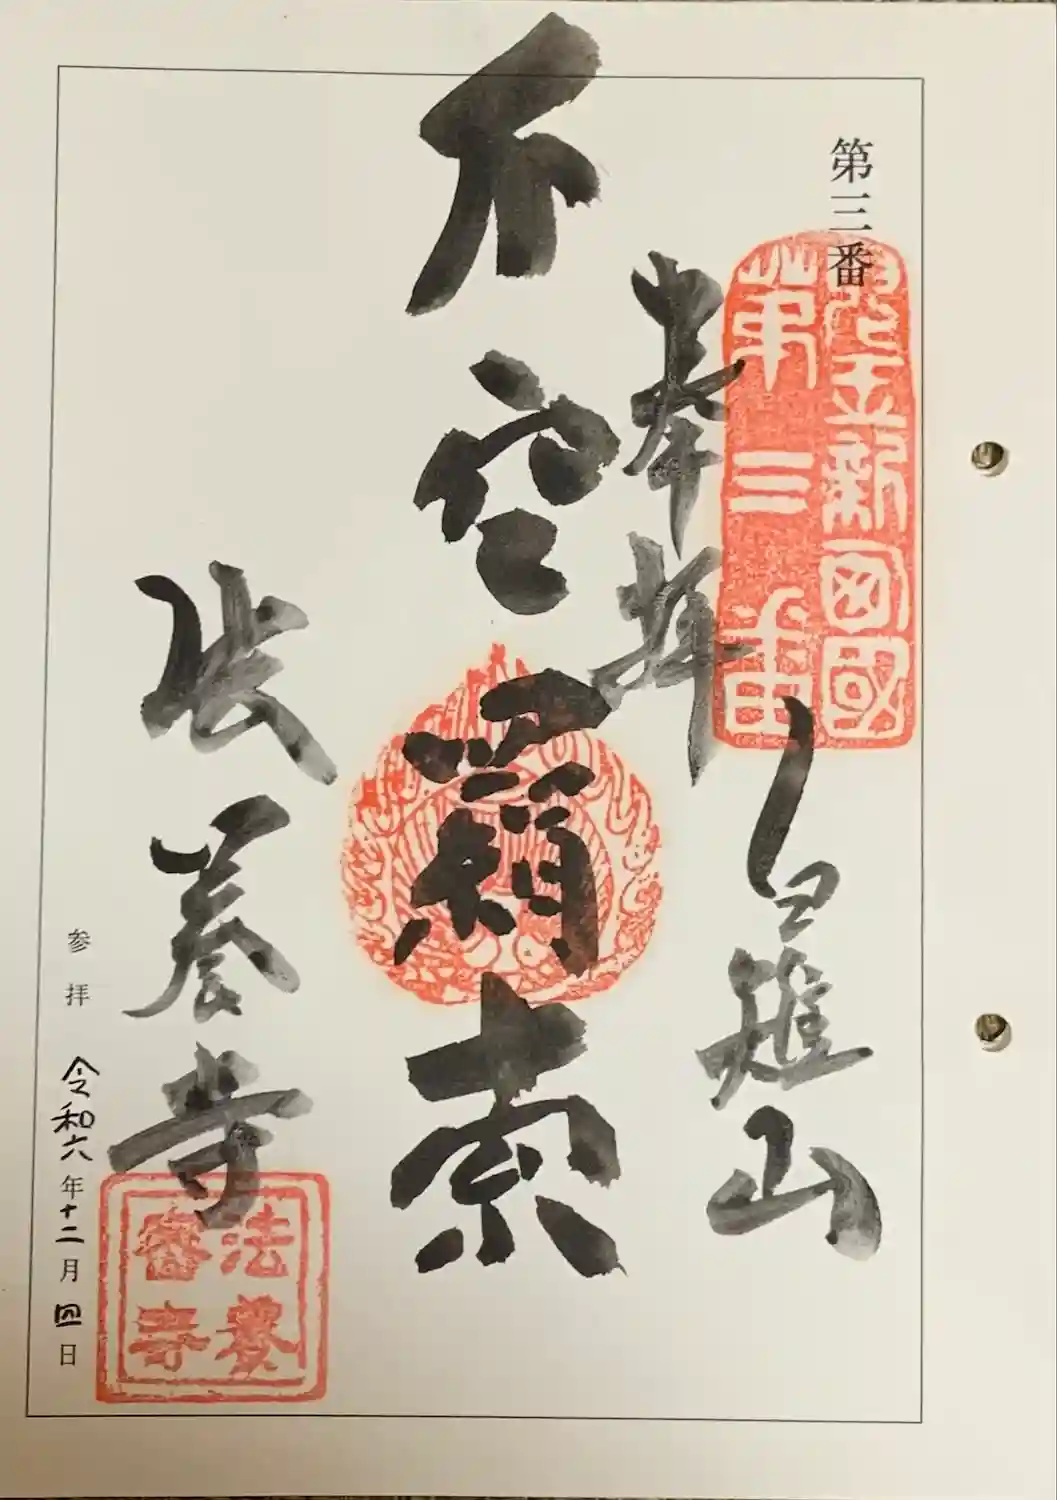 第三番
肥前新四國
第三番
白雉山
奉拝
不空羂索
法養寺
法養
密寺
参拝 令和六年十二月四日